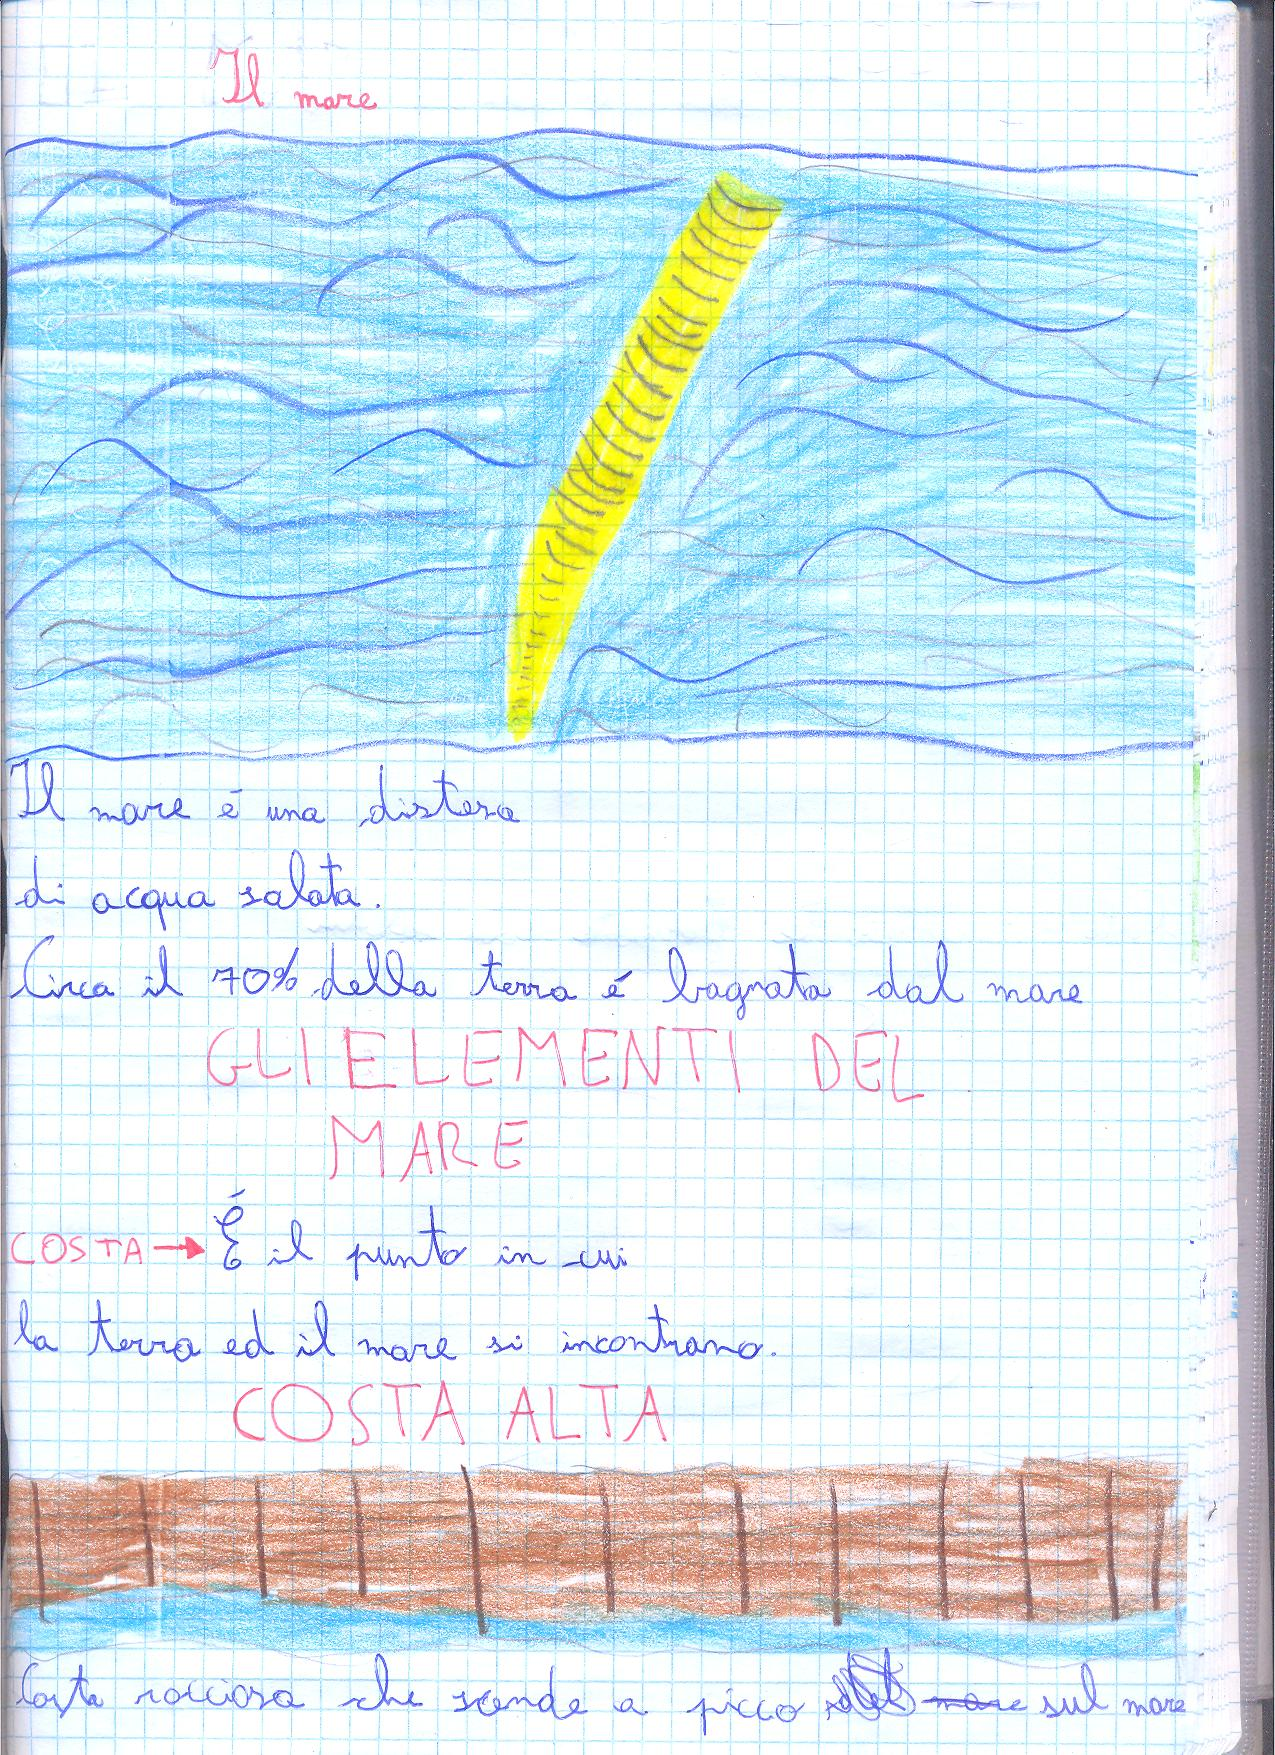 Il mare
Il mare é una distesa
di acqua salata.
Circa il 70% della terra é bagnata dal mare
GLI ELEMENTI DEL
MARE
COSTA → É il punto in cui
la terra ed il mare si incontrano.
COSTA ALTA
Costa rocciosa che scende a picco mare sul mare